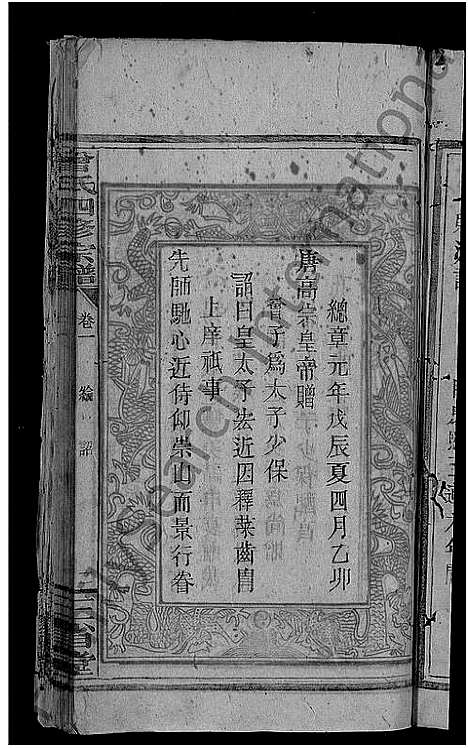 總章元年戊辰夏四月乙卯
唐高宗皇帝贈
曾子爲太子少保
詔曰皇太子㳒近因釋菜齒胄
上庠祗事
先師馳心近侍仰崇山而景行眷
曾氏四修宗譜
卷一
詔
三省堂
Research International